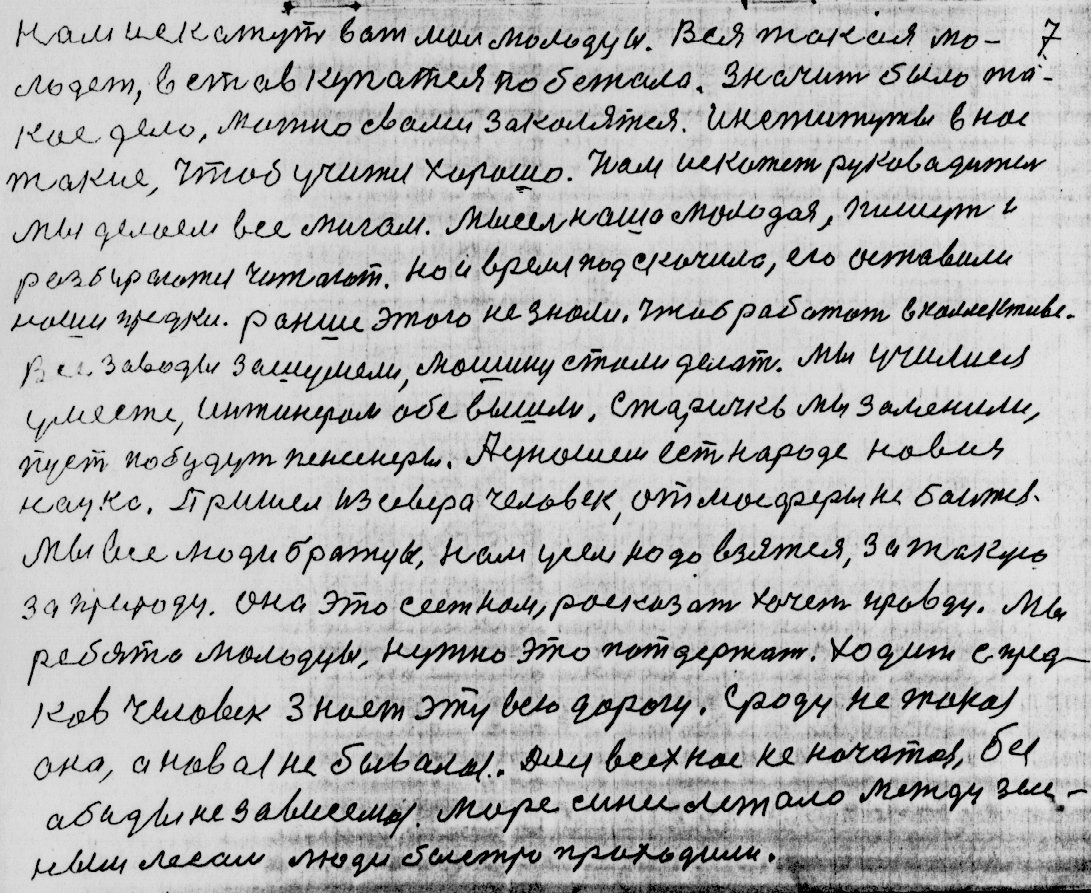 нам искажут вот мол молодцы. Вся такая мо- 7
лодеж, встав купатся побежала. Значит было та-
кое дело, можно свами заколятся. Институты в нас
такие, чтоб учитя хорошо. Нам искажет руководител
мы делаем все мигам. Мысел наша молодая, пишут и
разбираютя читают. Но и время подскочило, его оставили
наши предки. ранше этого не знали. Чтоб работат в коллективе.
Все заводы зашумели, машину стали делат. Мы училися
уместе, интинером обе вышли. Старичкв мы заменили,
пуст побудут пенсенеры. Аумошем ест народе новия
наука. Пришел из севера человек, атмосферы не баится.
Мы все люди братцы, нам усем надо взятся, за такую
за природу. она это сест нам, росказат хочет правду. Мы
ребята молодцы, нужно это потдержат. Ходит спред-
ков человек знает эту всю дорогу. Сроду не такая
она, а новая не бывала. Для всех нас не начатая, без
абиды не зависемы. Море сини лежало между зеле-
ным лесам люди быстро проходили.